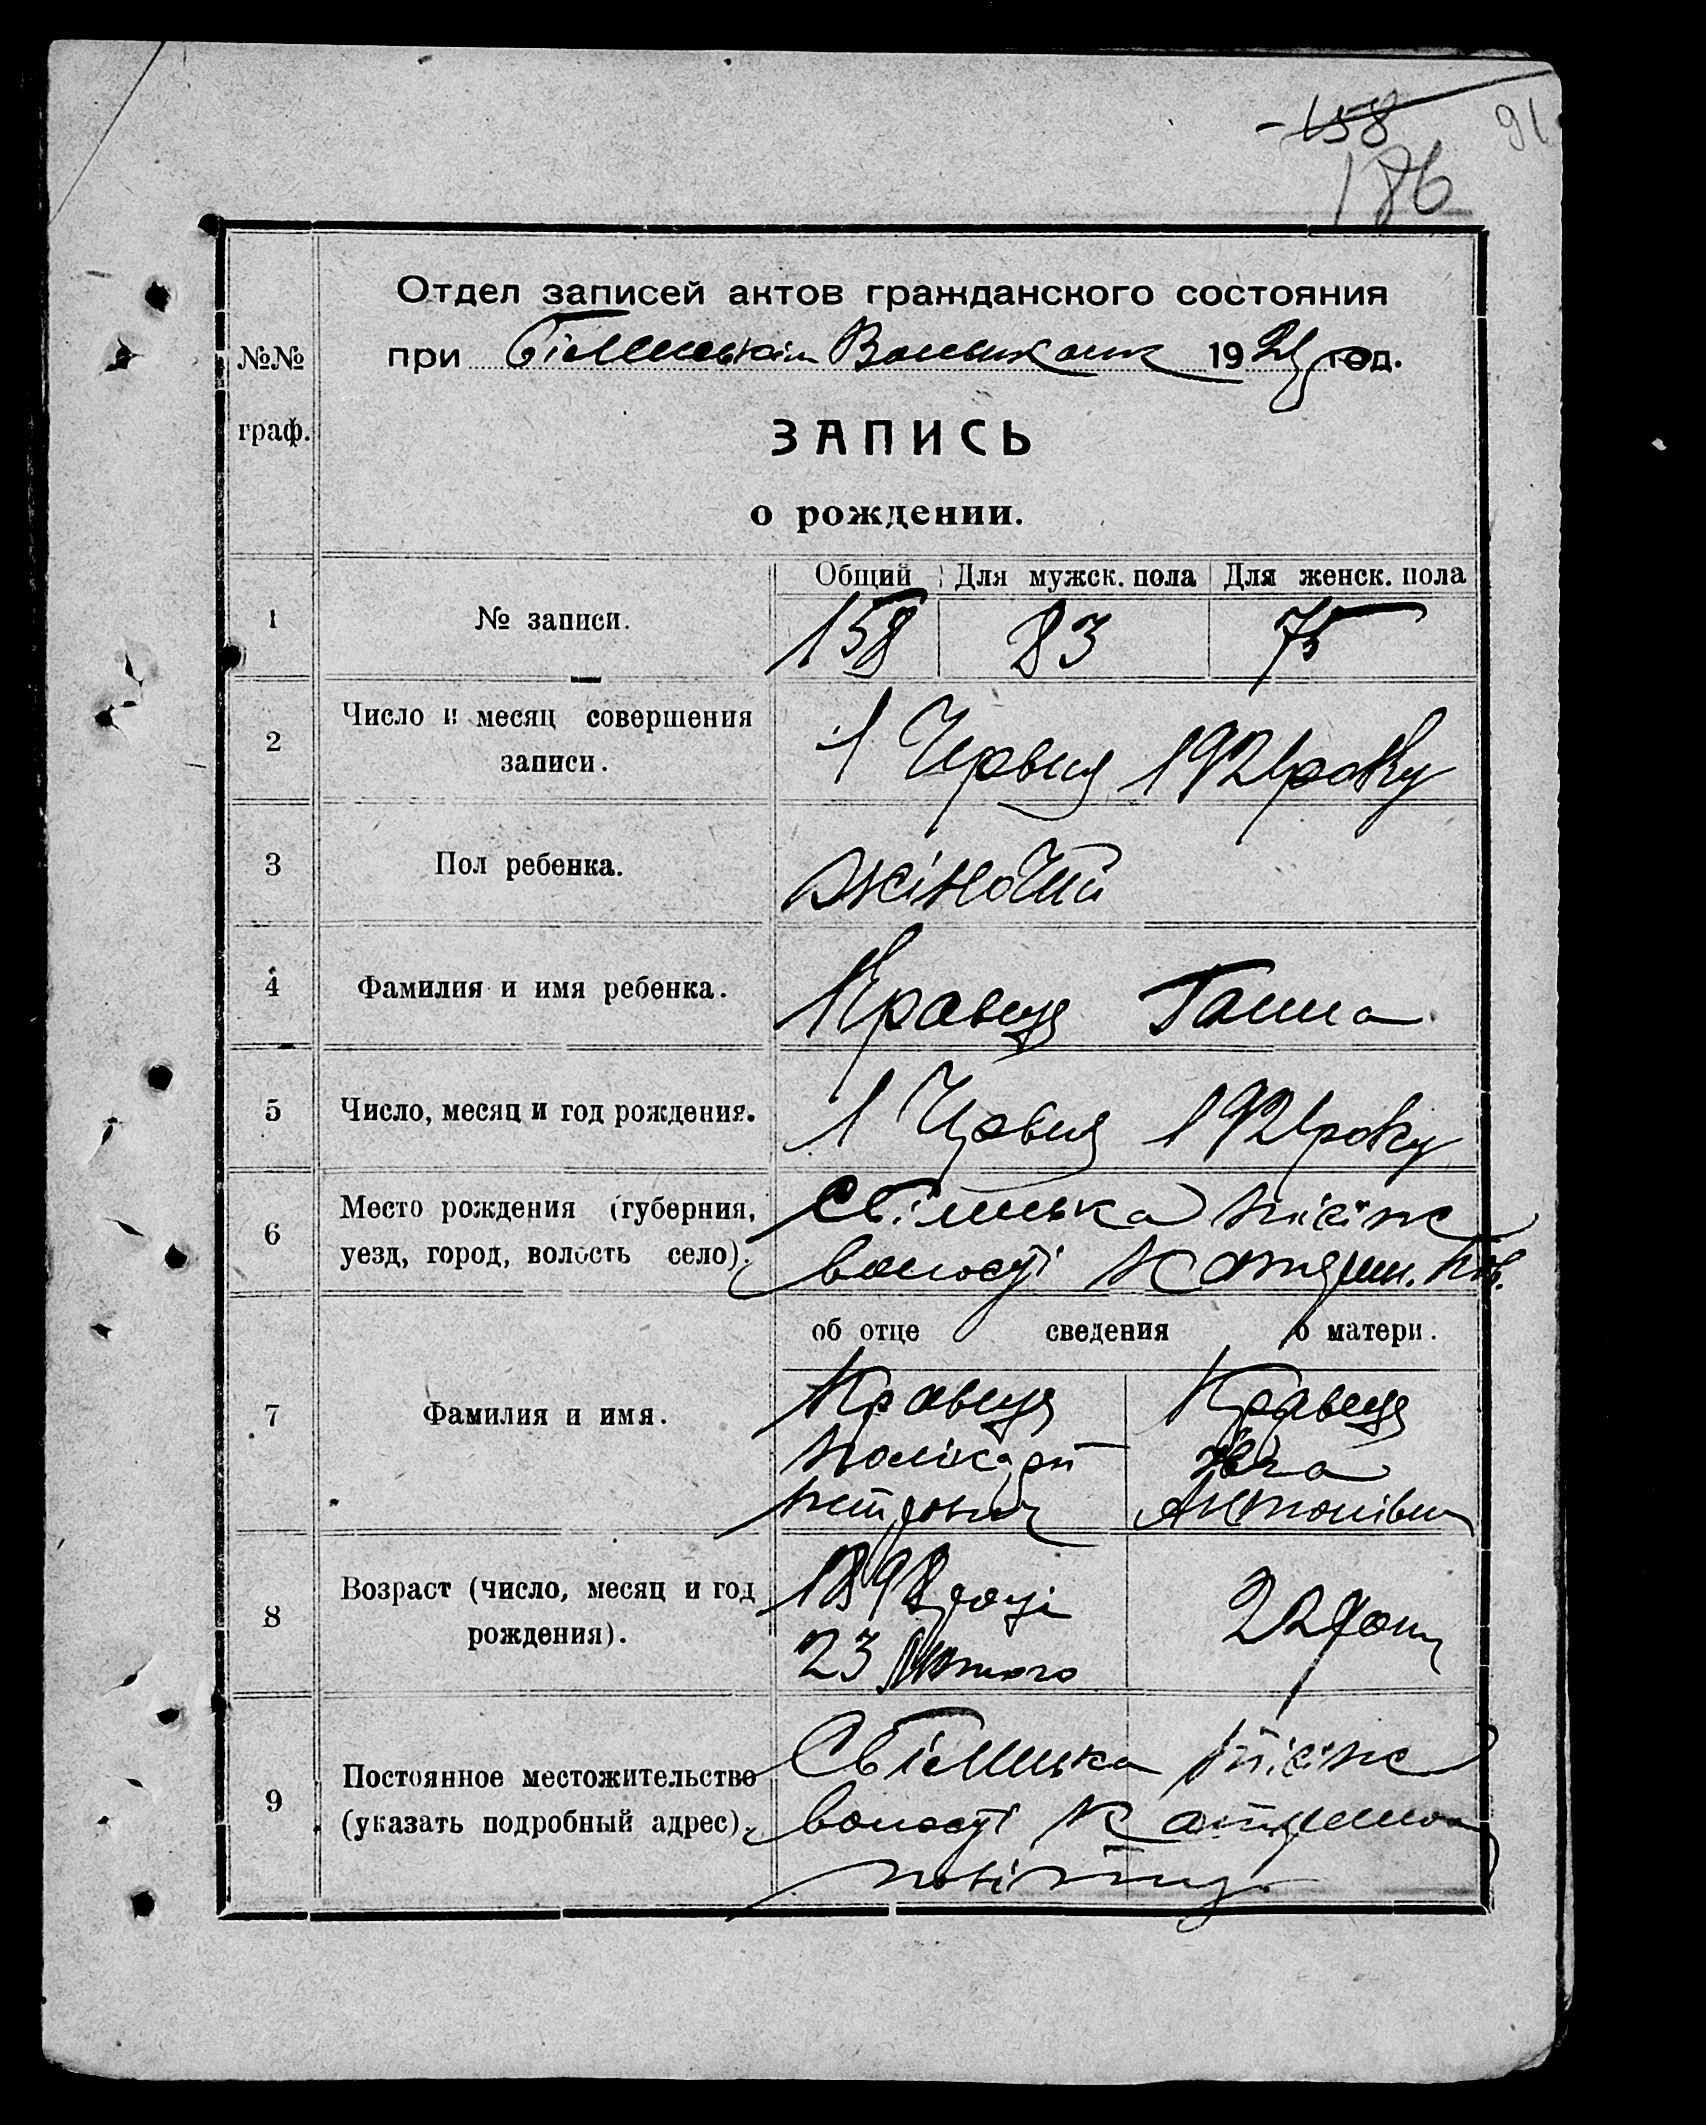 158
91
186
Отдел записей актов гражданского состояния
№№
при Білицькім Волвиконк 1921 год.
граф.
ЗАПИСЬ
о рождении.
Общий Для мужск. пола Для женск. пола
1 № записи. 158 83 75
2 Число и месяц совершения
записи.
1 Червня 1921 року
3 Пол ребенка. жіночий
4 Фамилия и имя ребенка. Кравця Ганна
5 Число, месяц и год рождения. 1 Червня 1921 року
6 Место рождения (губерния,
уезд, город, волость село).
волості пов.
об отце сведения о матери.
7 Фамилия и имя.
Кравця Кравця
Полікарп
Петрович Антонівна
8 Возраст (число, месяц и год
рождения).
1898 році 22 роки
23 Лютого
9 Постоянное местожительство
(указать подробный адрес).
волості
повіту